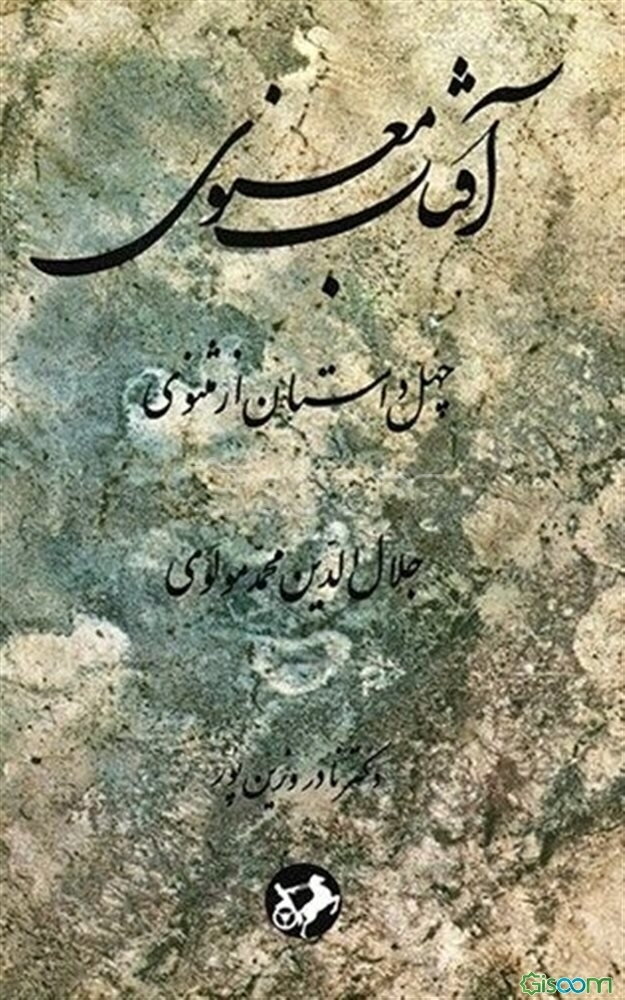 آفتاب معنوی
چهل داستان از مثنوی
جلال الدّین محمّد مولوی
دکتر نادر وزین پور
Gisoom